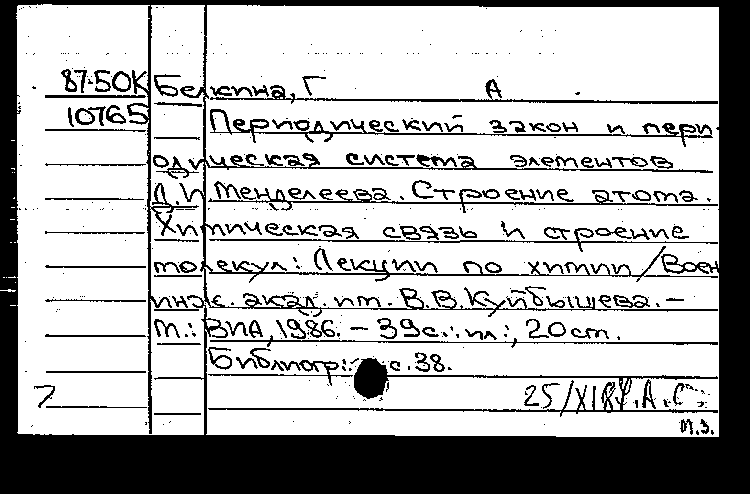 87-50К Белкина, Г А
10765 Периодический закон и пери-
одическая система элементов
Д.И. Менделеева. Строение атома.
Химическая связь и строение
молекул: Лекции по химии / Воен.
инж. акад. им. В.В. Куйбышева. –
М.: ВИА, 1986. – 39 с.: ил.; 20 см.
Библиогр.: с. 38.
25/XI 87. А.С.
М.З.